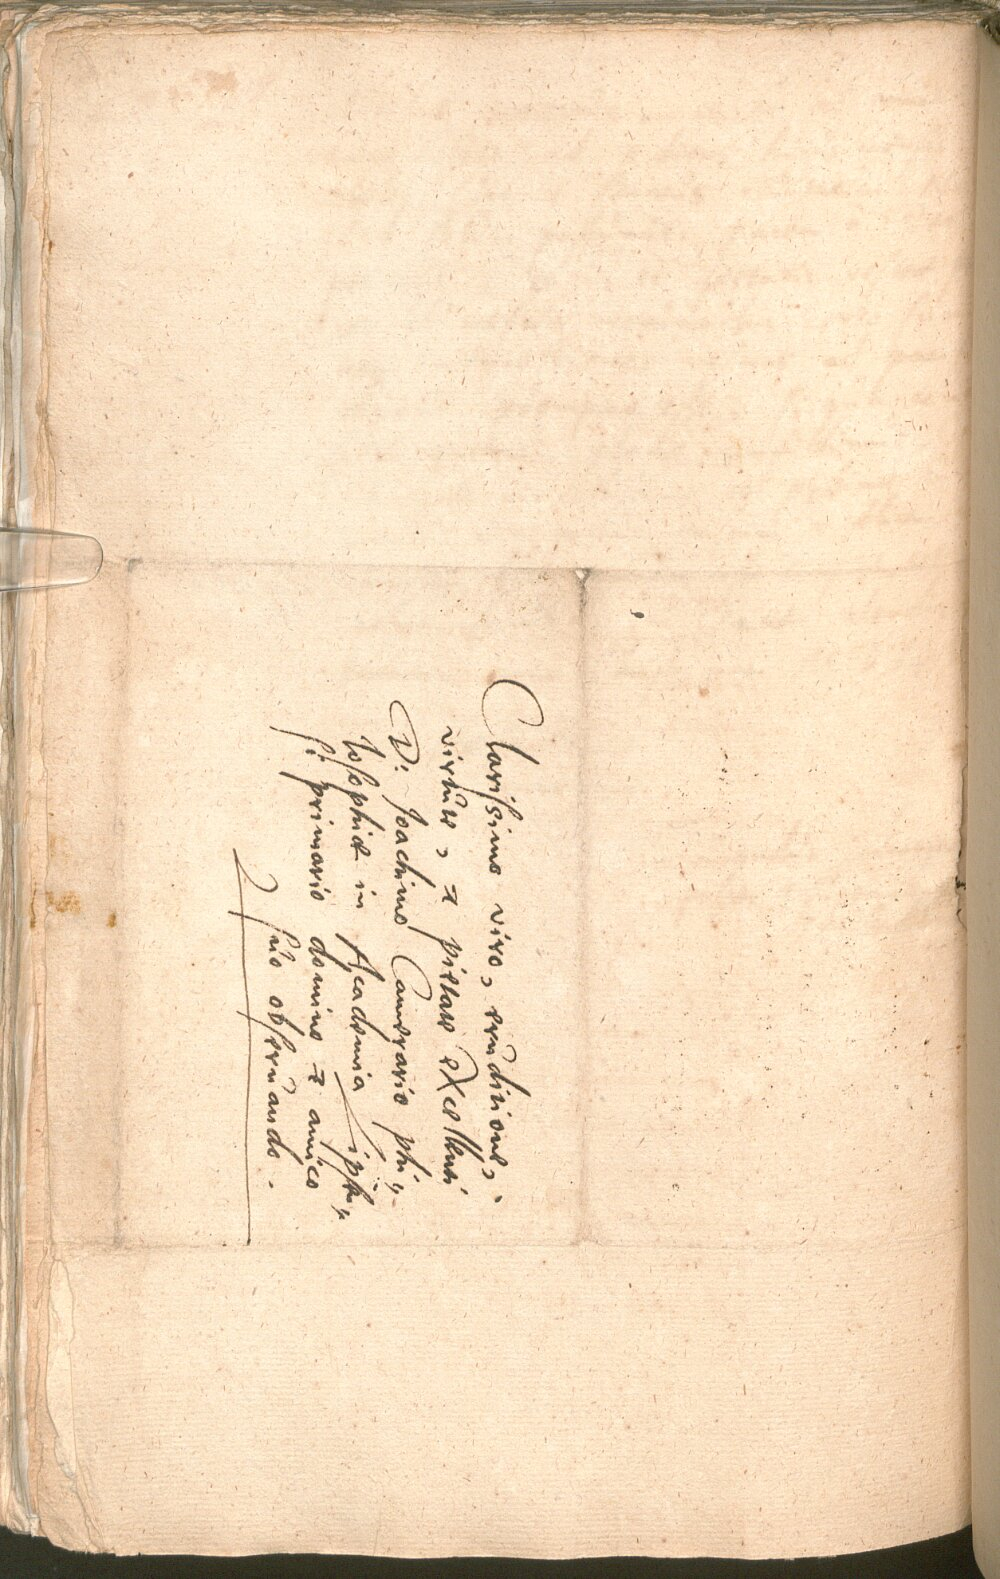 Clarissimo viro, eruditione,
virtute, & pietate excellenti
D: Joachimo Camerario phi„
losophiæ in Academia Lips„
si primario domino & amico
suo obseruando.